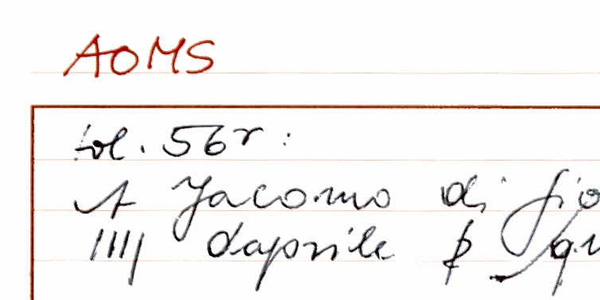 AOMS
fol. 56r:
A Jacomo di gio
IIIJ daprile